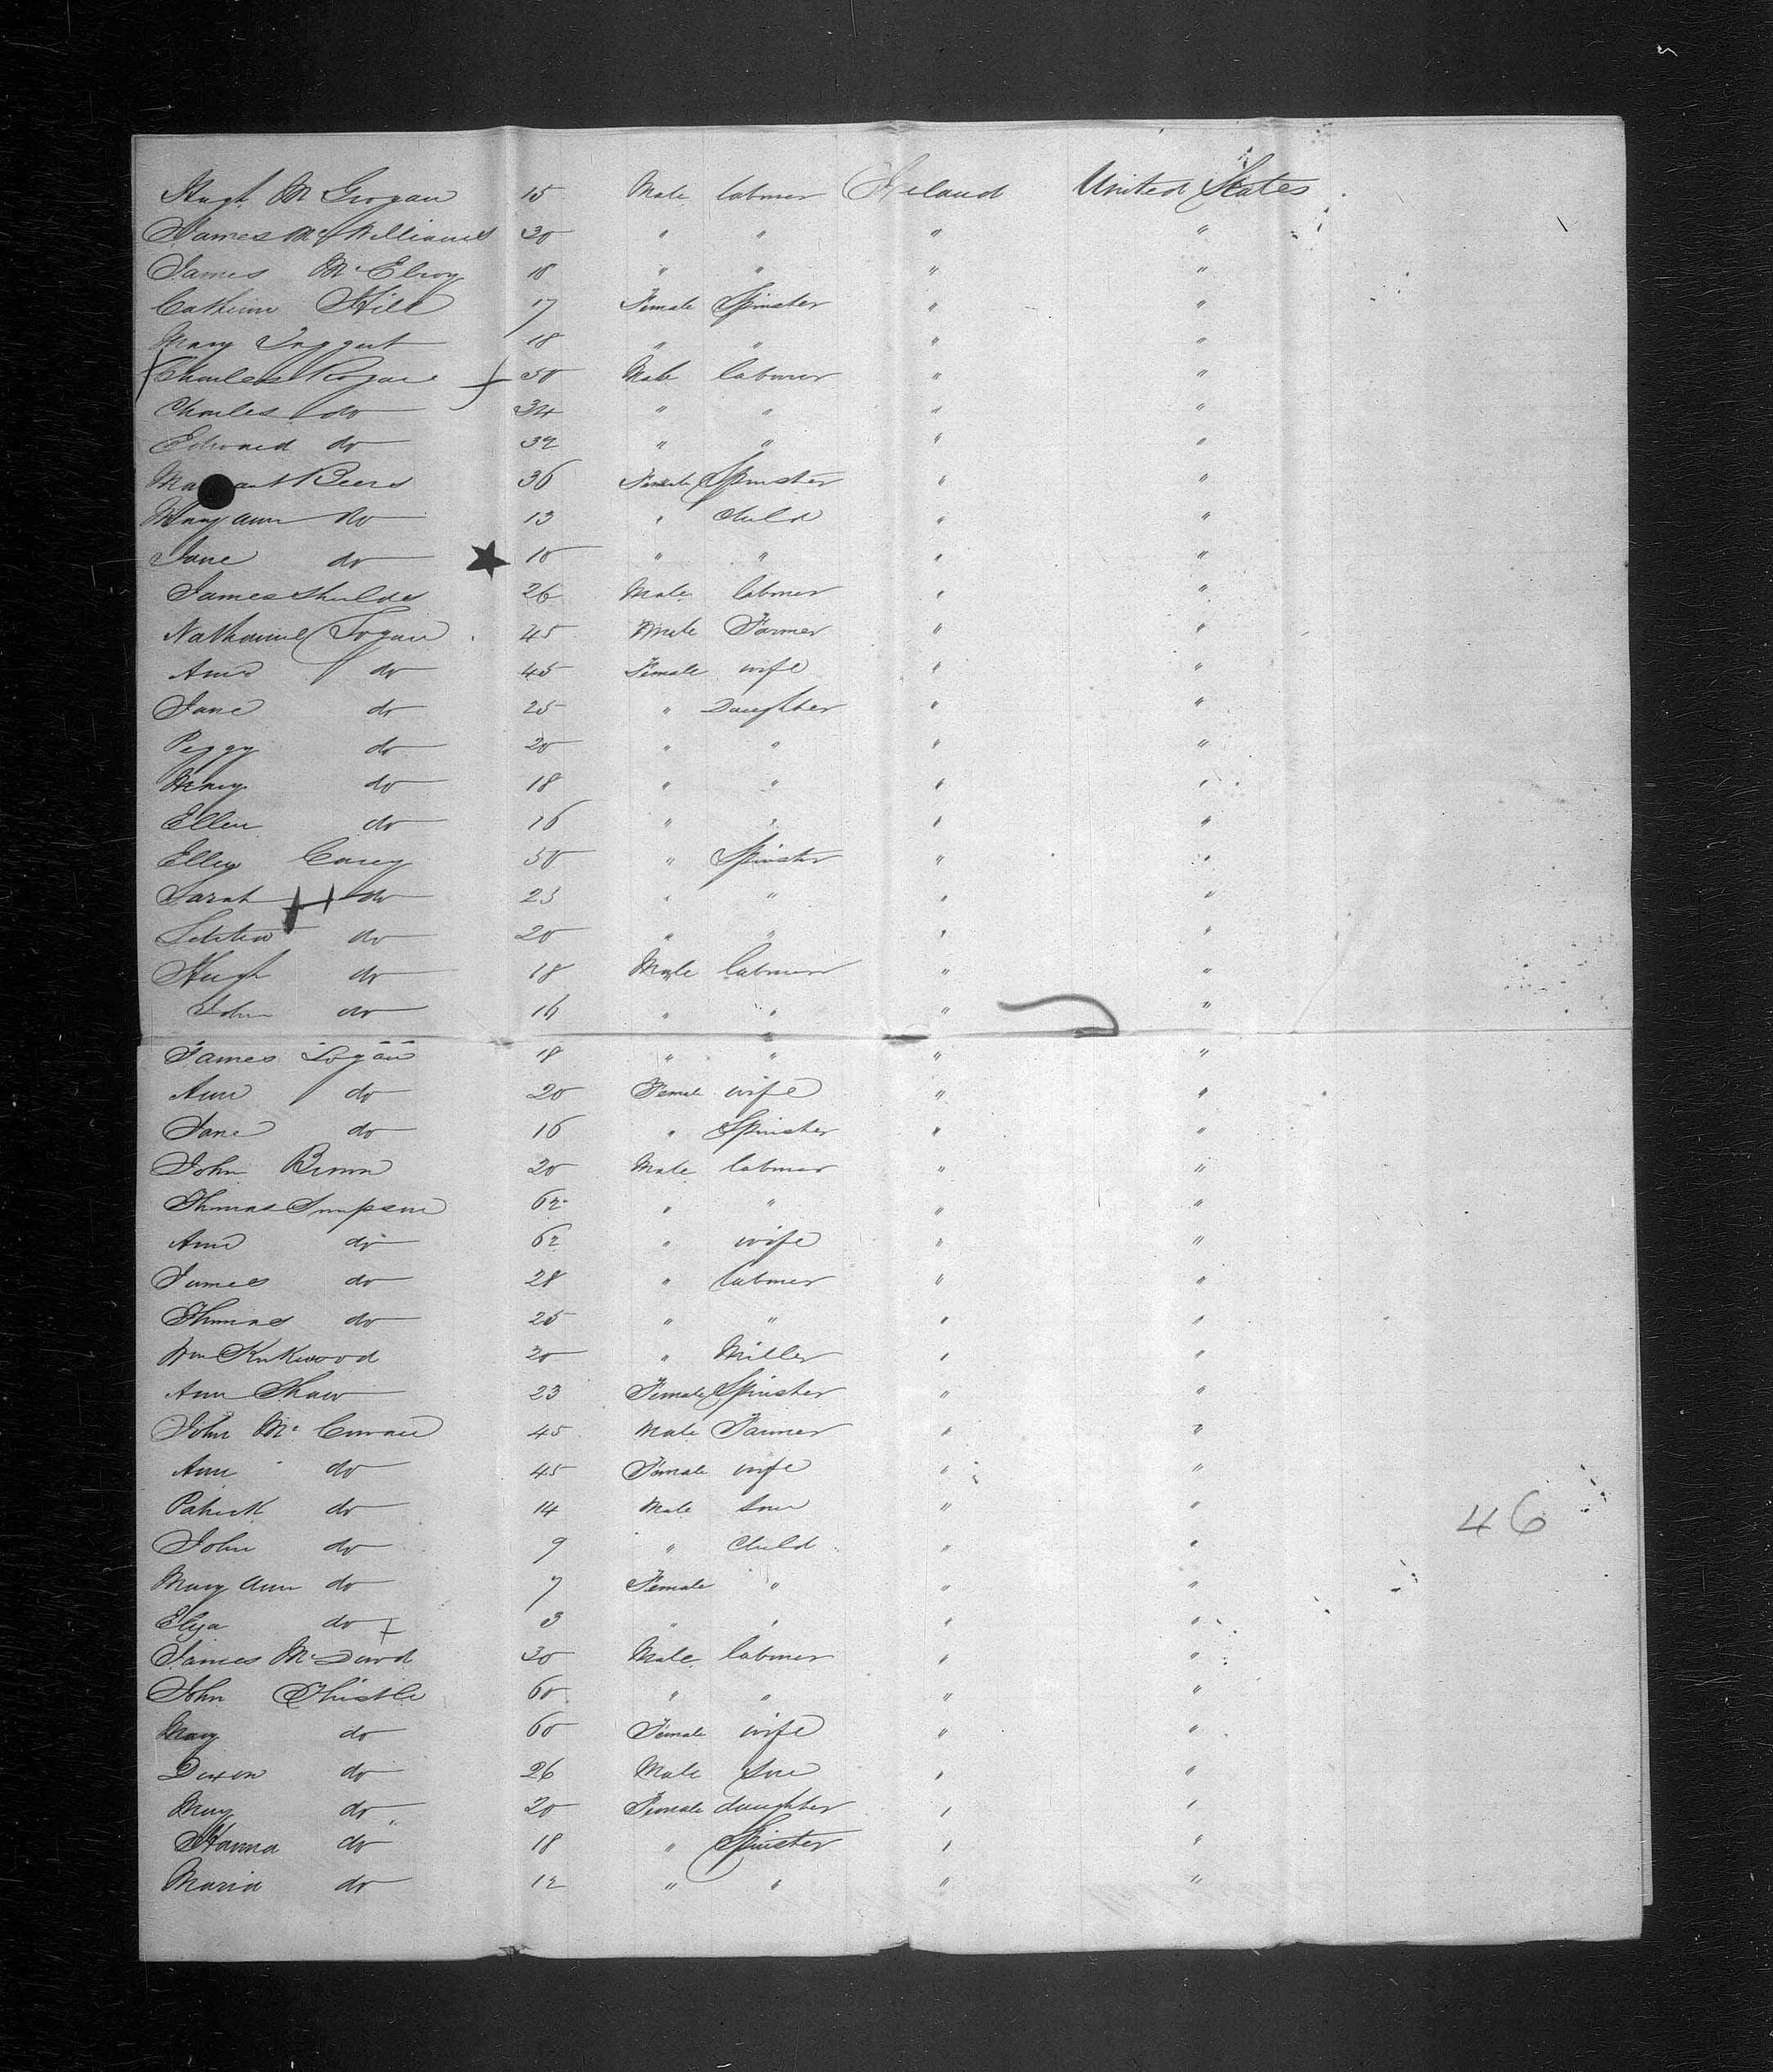 Hugh Mc Grogan 15 Male labourer Ireland United States
James Mc Williams 30 " " " "
James Mc Elroy 18 " " " "
Catherine Hill 17 Female Spinster " "
Mary Taggart 18 " " " "
Charles Rogan 50 Male labourer " "
Charles do 34 " " " "
Edward do 32 " " " "
Ma ant Beers 36 Female Spinster " "
Mary Ann do 13 " Child " "
Jane do 10 " " " "
James Shields 26 Male labourer " "
Nathaniel Logan 45 Male Farmer " "
Ann do 45 Female wife " "
Jane do 25 " Daughter " "
Peggy do 20 " " " "
Mary do 18 " " " "
Ellen do 16 " " " "
Ellen Carey 50 " Spinster " "
Sarah do 23 " " " "
Letitia do 20 " " " "
Hugh do 18 Male labourer " "
John do 16 " " " "
James Logan 18 " " " "
Ann do 20 Female wife " "
Jane do 16 " Spinster " "
John Brown 20 Male labourer " "
Thomas Simpson 62 " " " "
Ann do 62 " wife " "
James do 28 " labourer " "
Thomas do 25 " " " "
Wm Kirkwood 20 " Miller " "
Ann Shaw 23 Female Spinster " "
John Mc 45 Male Farmer " "
Ann do 45 Female wife " "
Patrick do 14 Male Son " "
John do 9 " Child " "
Mary Ann do 7 Female " " "
Eliza do 3 " " " "
James Mc David 30 Male labourer " "
John Thistle 60 " " " "
Mary do 60 Female wife " "
Dixon do 26 Male Son " "
Mary do 20 Female daughter " "
Hanna do 18 " Spinster " "
Maria do 12 " " " "
46